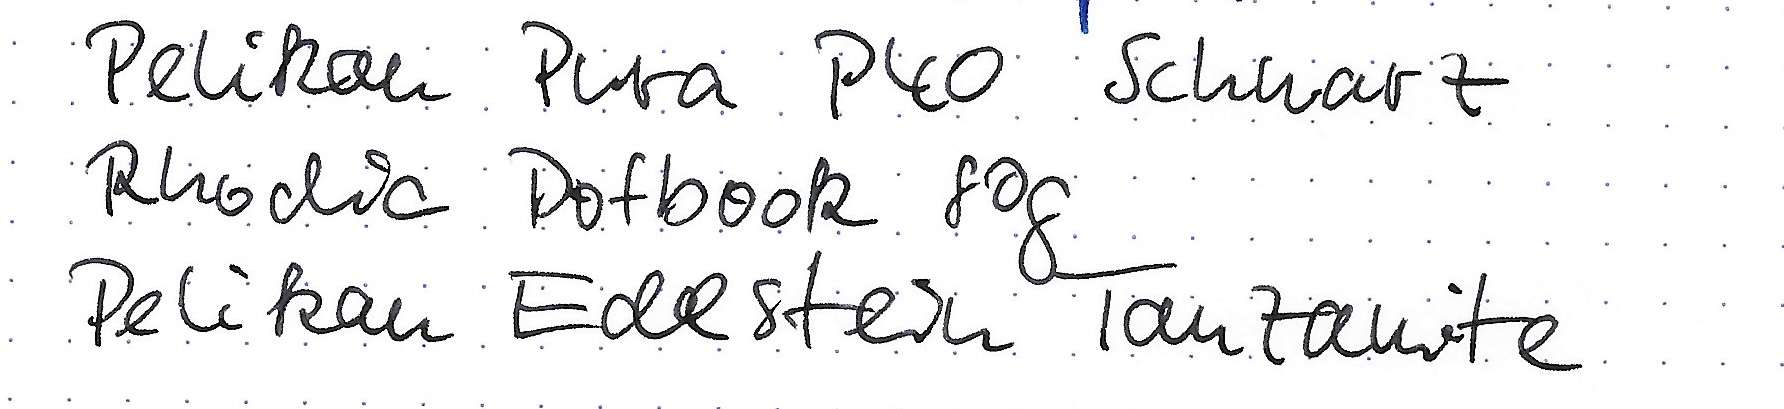 Pelikan Pura P40 Schwarz
Rhodia Dotbook 80g
Pelikan Edelstein Tanzanite